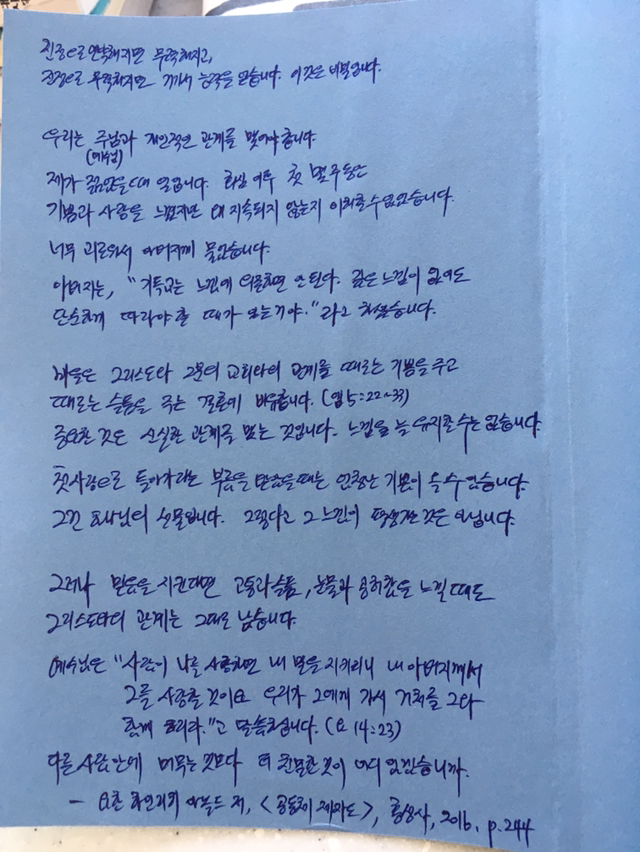 진정으로 연약해지면 무력해지고,
진정으로 무력해지면 거기서 능력을 얻습니다. 이것은 비밀입니다.
우리는 주님과 개인적인 관계를 맺어야 합니다
(예수님)
제가 젊었을 때 일입니다. 회심 이후 첫 몇 주 동안
기쁨과 사랑을 느꼈지만 왜 지속되지 않는지 이해할 수 없었습니다.
너무 괴로워서 아버지께 물었습니다.
아버지는, "기독교는 느낌에 의존하면 안 된다. 깊은 느낌이 없어도
단순하게 따라야 할 때가 오는 거야." 라고 하셨습니다.
바울은 그리스도와 그분의 교회와의 관계를 때로는 기쁨을 주고
때로는 슬픔을 주는 결혼에 비유합니다. (엡 5:22~33)
중요한 것은 신실한 관계를 맺는 것입니다. 느낌을 늘 유지할 수는 없습니다.
첫사랑으로 돌아가라는 부름을 받았을 때는 엄청난 기쁨이 올 수 있습니다.
그건 하나님의 선물입니다. 그렇다고 그 느낌이 영원한 것은 아닙니다.
그러나 믿음을 지킨다면 고통과 슬픔, 눈물과 공허함을 느낄 때도
그리스도와의 관계는 그대로 남습니다.
예수님은 "사람이 나를 사랑하면 내 말을 지키리니 내 아버지께서
그를 사랑할 것이요 우리가 그에게 가서 거처를 그와
함께 하리라." 고 말씀하십니다. (요 14:23)
다른 사람 안에 머무는 것보다 더 친밀한 것이 어디 있겠습니까.
- 요한 하인리히 아놀드 저, <공동체 제자도>, 홍성사, 2016, p.244